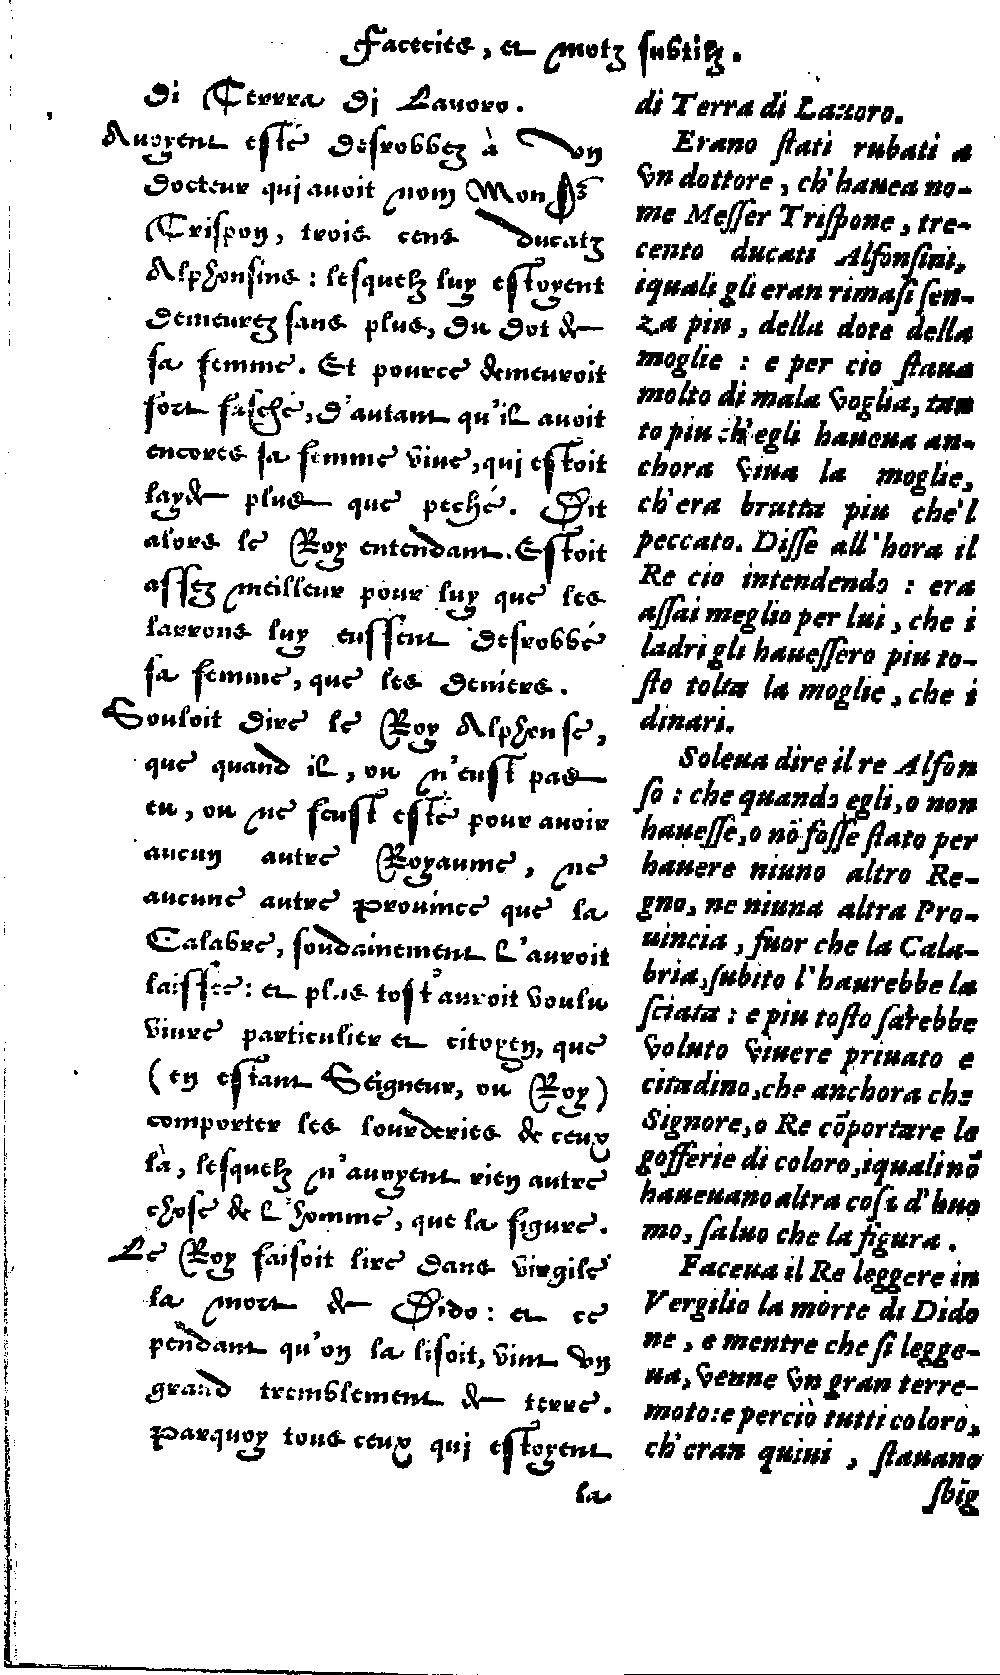 Facecies, et motz subtilz.
di Terrra di Lavoro.
Avoyent esté desrobbez à vn
docteur qui avoit nom Mons.
Crispon, trois cens ducatz
Alphonsins: lesquelz luy estoyent
demeurez sans plus, du dot de
sa femme. Et pource demeuroit
fort fasché, d'autant qu'il avoit
encores sa femme vive, qui estoit
layde plus que peché. Dit
alors le Roy entendant. Estoit
assez meilleur pour luy que les
larrons luy eussent desrobbé
sa femme, que les deniers.
Souloit dire le Roy Alphonse,
que quand il, ou n'eust pas
eu, ou ne feust esté pour avoir
aucun autre Royaume, ne
aucune autre province que la
Calabre, soudainement l'auroit
laissée: et plus tost auroit voulu
vivre particulier et citoyen, que
(en estant Seigneur, ou Roy)
comporter les lourderies de ceux
là, lesquelz n'avoyent rien autre
chose de l'homme, que la figure.
Le Roy faisoit lire dans virgile
la mort de Dido: et ce
pendant qu'on la lisoit, vint vn
grand tremblement de terre.
Parquoy tous ceux qui estoyent
la
di Terra di Lauoro.
Erano ſtati rubati a
vn dottore, ch'hauea no-
me Meſſer Triſpone, tre-
cento ducati Alfonſini,
iquali gli eran rimaſi ſen-
za piu, della dote della
moglie: e per cio ſtaua
molto di mala voglia, tan
to piu ch'egli haueua an-
chora viua la moglie,
ch'era brutta piu che'l
peccato. Diſſe all'hora il
Re cio intendendo: era
aſſai meglio per lui, che i
ladri gli haueſſero piu to-
ſto tolta la moglie, che i
dinari.
Soleua dire il re Alfon
ſo: che quando egli, o non
haueſſe, o nō foſſe ſtato per
hauere niuno altro Re-
gno, ne niuna altra Pro-
uincia, fuor che la Cala-
bria, ſubito l'haurebbe la
ſciata: e piu toſto ſarebbe
voluto viuere priuato e
citadino, che anchora che
Signore, o Re cōportare le
gofferie di coloro, iquali nō
haueuano altra coſa d'huo
mo, ſaluo che la figura.
Faceua il Re leggere in
Vergilio la morte di Dido
ne, e mentre che ſi legge-
ua, venne vn gran terre-
moto: e perciò tutti coloro,
ch'eran quiui, ſtauano
ſbig